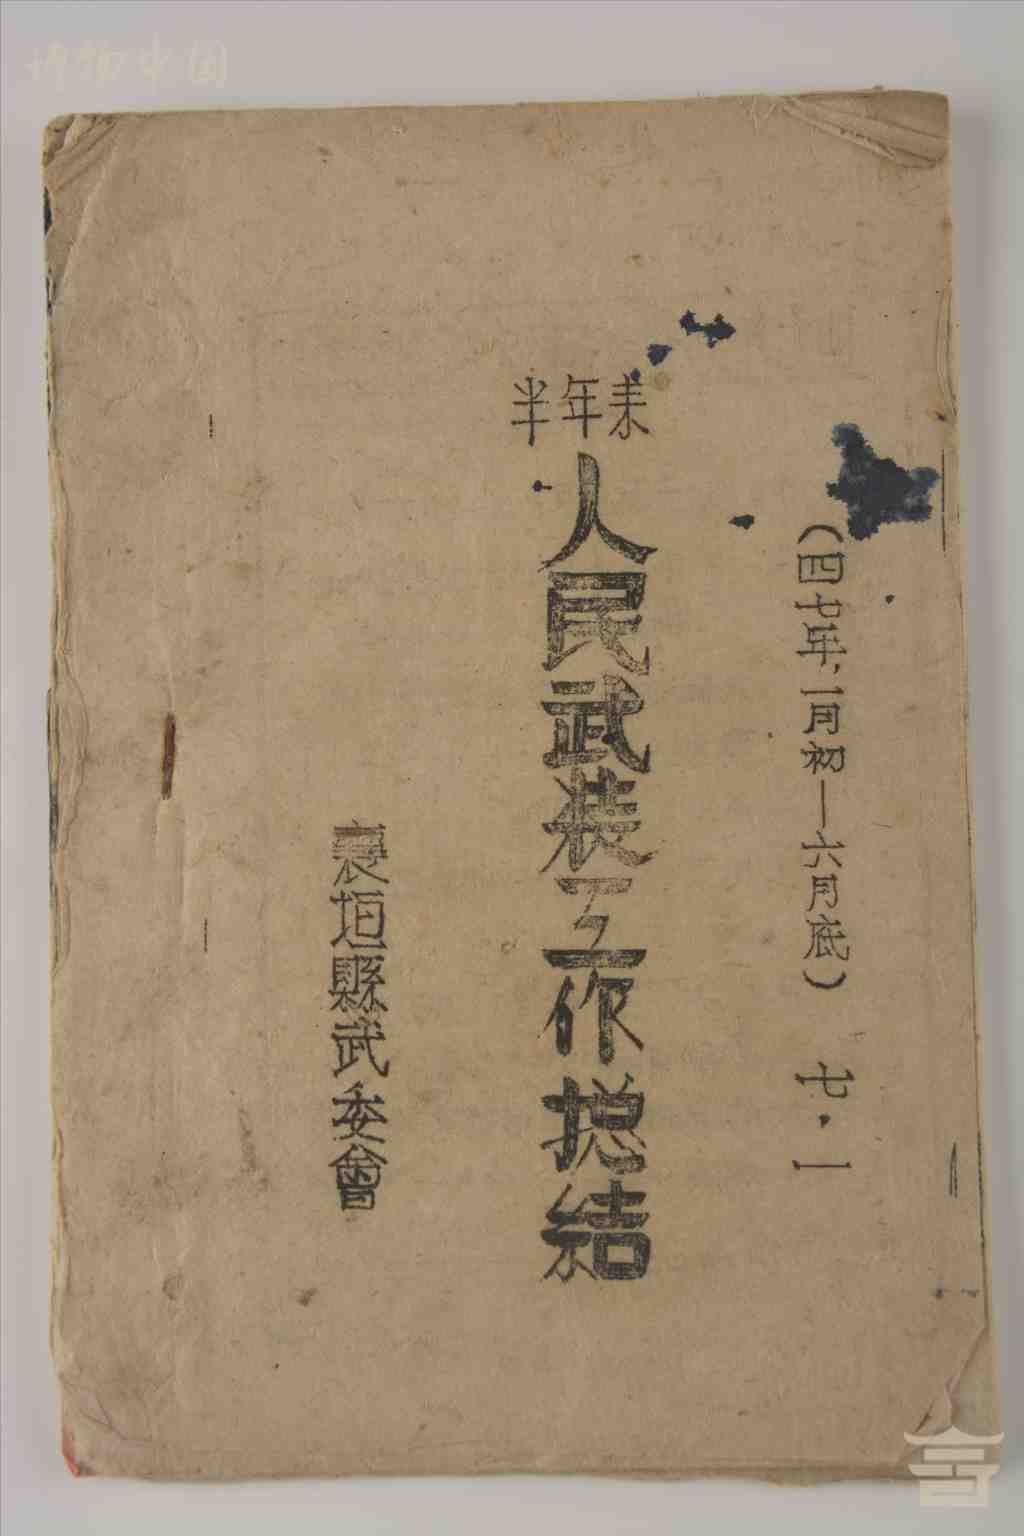 半年来
人民武装工作总结
(四七年、一月初—六月底) 七·一
襄垣縣武委會
博物中国